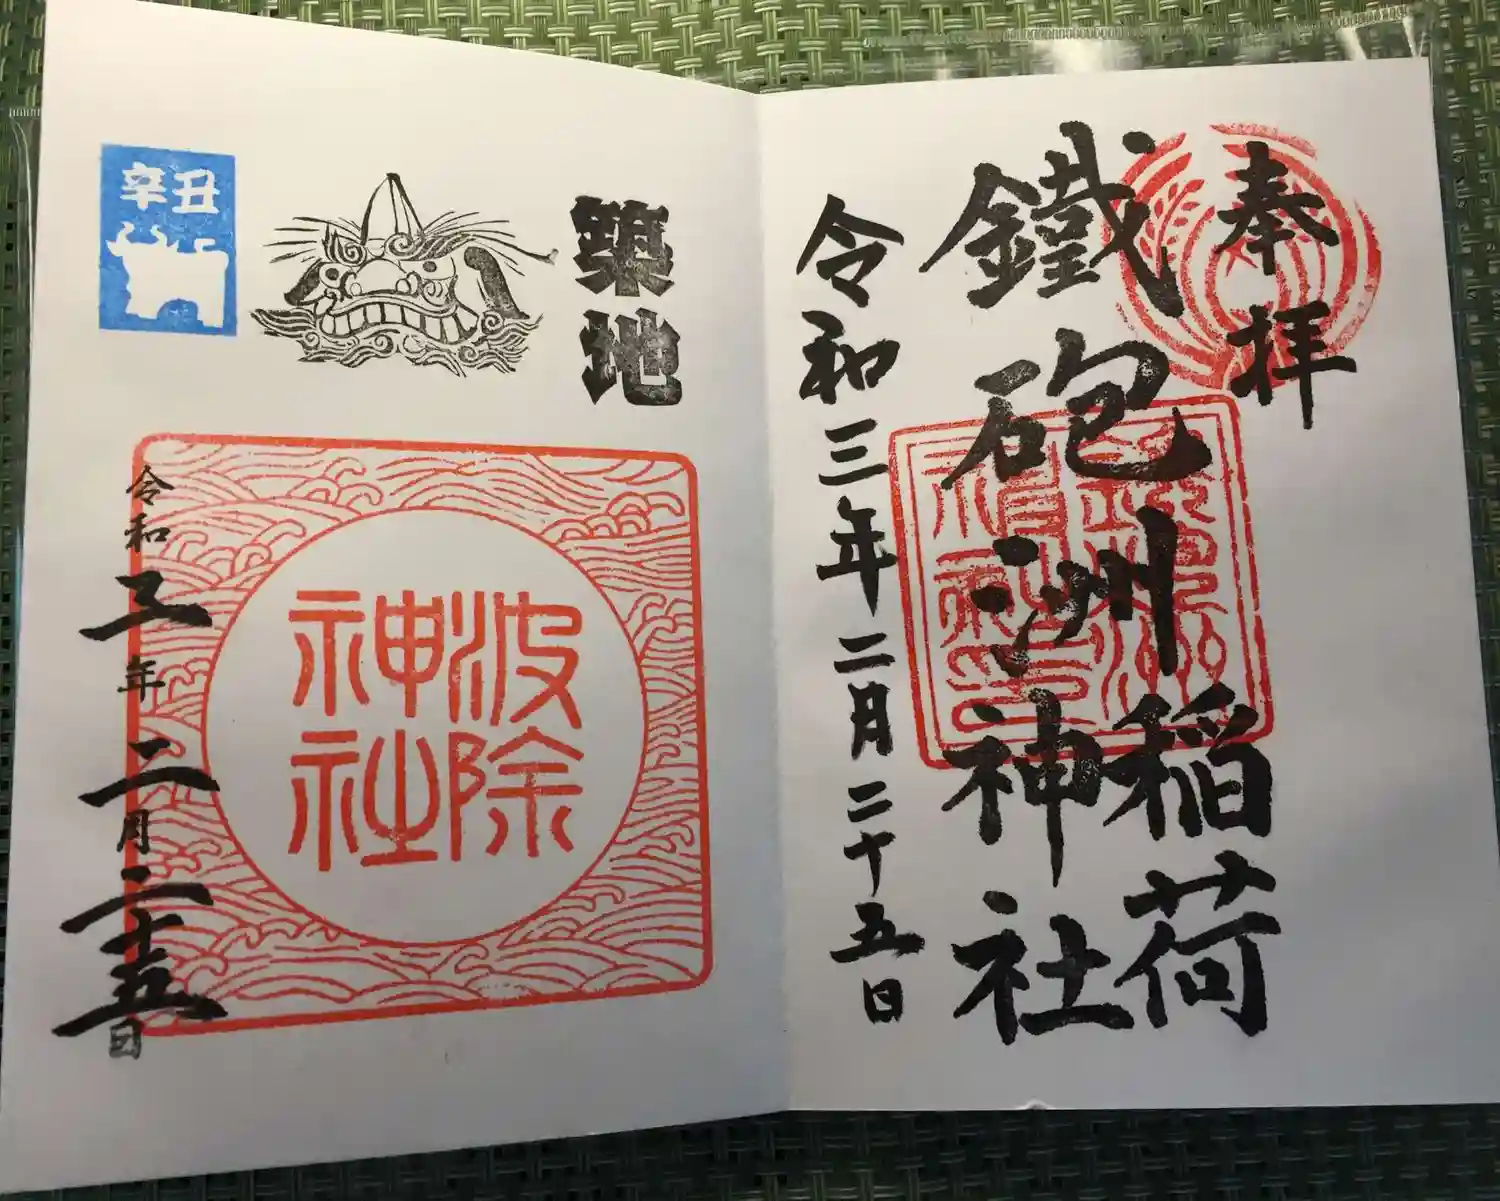 奉拝
鐵砲洲
稲荷
神社
令和三年二月二十五日
築地
波除
神社
辛丑
令和三年二月二十五日